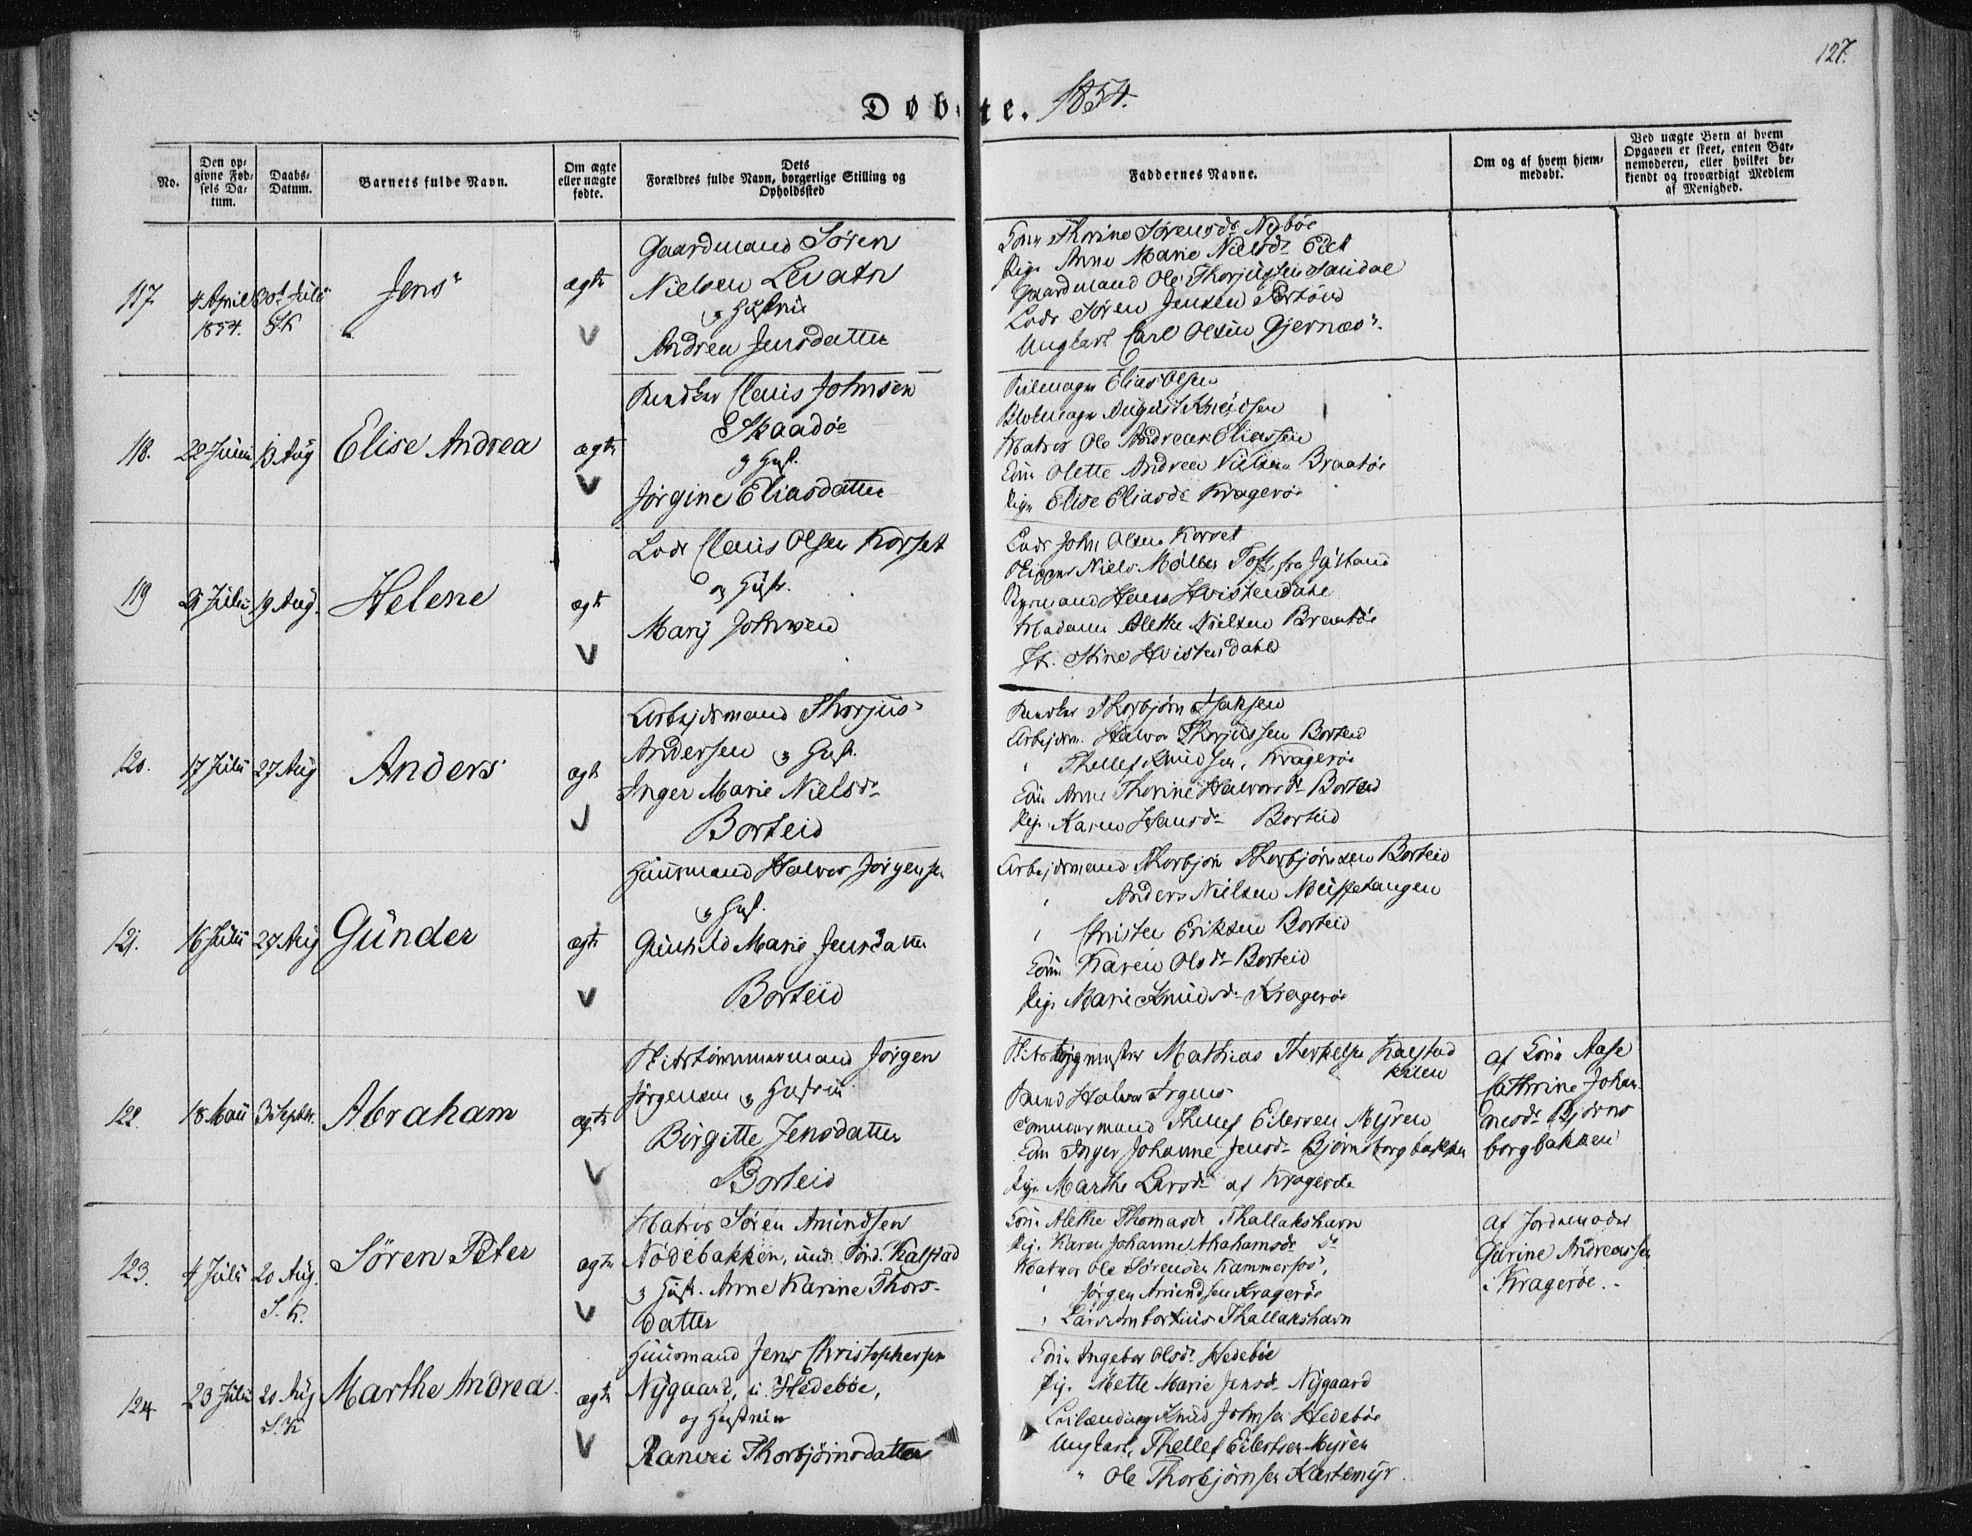 127.
Døbte. 1854.
No.
Den opgivne Fødsels Datum.
Daabs-Datum.
Barnets fulde Navn.
Om ægte eller uægte fødte.
Dets Forældres fulde Navn, borgerlige Stilling og Opholdssted
Faddernes Navne.
Om og af hvem hjemmedøbt.
Ved uægte Børn af hvem Opgaven er skeet, enten Barnemoderen, eller hvilket bekjendt og troværdigt Medlem af Menighed.
117.
4 April
1854.
S.K
Jens
ægte
Gaardmand Søren
Nielsen Levatn
og Hustrue
Andrea Jensdatter
Kone Thorine Sørensd.
Pige Anne Marie Nielsd. Eiet
Gaardmand Ole Thorjussen Sandal
Lods Søren Jensen
Ungkarl Carl Olsen Gjernæs.
118.
22 Juni
13 Aug
Elise Andrea
ægte
Claus Johnsen
Skaadøe
og Hust.
Jørgine Eliasdatter
Elias Olsen
August Knudsen
Matros Ole Andreas Eliassen
Kone Olette Andrea Nielsen Braatøe
Pige Elise Eliasd. Kragerøe
119
19 Aug.
Helene
ægte
Lods Claus Olsen Korset
og Hustr.
Mary Johnsen
Lods John Olsen Korset
Skipper Niels Møller Toft, fra Jylland
Styrmand Hans Hvistendahl
Madame Alethe Nielsen Braatøe
Fr. Stine Hvistendahl
120.
17 Juli
27 Aug
Anders
ægte
Arbejdsmand Thorjus
Andersen og Hust.
Inger Marie Nielsd.
Borteid
Thorbjørn Isaksen
Arbejdsm. Halvor Thorjussen Borteid
Thellef Knudsen, Kragerøe
Kone Anne Thorine Halvorsd. Borteid
Pige Karen Hansd. Borteid
121.
16 Juli
27 Aug
Günder
ægte
Huusmand Halvor Jørgensen
og Hust.
Gunhild Marie Jensdatter
Borteid
Arbejdsmand Thorbjørn Thorbjørnsen Borteid
Anders Nielsen
Christen Eriksen Borteid
Kone Karen Olsd. Borteid
Pige Marie Knudsd. Kragerøe
122.
18 Mai
3 Septbr.
Abraham
ægte
Skibstømmermand Jørgen
Jørgensen og Hustrue
Birgitte Jensdatter
Borteid
Skibsbygmester Mathias Therkelsen Kalstad
Kilen
Halvor
Tømmermand Thellef Eilersen Myren
Kone Inger Johanne Jensd. Bjørnsborgbakken
Pige Marthe Larsd. af Kragerøe
af Kone Aase
Cathrine Johan-
nesd. Bjørns-
borgbakken
123.
4 Juli
20 Aug.
S.K.
Søren Peter
ægte
Matros Søren Amundsen
Nødebakken, und. Kalstad
og Hust. Anne Karine Thors-
datter
Kone Alethe Thomasd. Thallakshavn
Pig. Karen Johanne Abrahamsd. do
Matros Ole Sørensen Kammerfos,
Jørgen Amundsen Kragerøe
Thallakshavn
af Jordemoder
Gurine Andreassen
i Kragerøe.
124
23 Juli
20 Aug
S.K
Marthe Andrea
ægte
Huusmand Jens Christophersen
Nygaard, u. Hedebøe,
og Hustrue
Ranvei Thorbjørnsdatter
Kone Ingebor Olsd. Hedebøe
Pig. Mette Marie Jensd. Nygaard
Leilænding Knud Johnsen Hedebøe
Ungkarl, Thellef Eilertsen Myren
" Ole Thorbjørnsen Kartemyr.